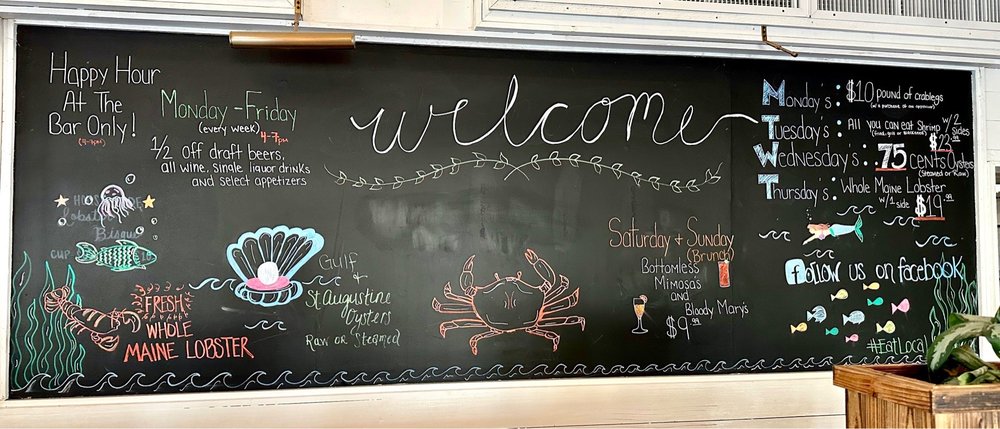 Happy Hour
At The
Bar Only!
(4-7pm)
Monday-Friday
(every week) 4-7pm
1/2 off draft beers,
all wine, single liquor drinks
and select appetizers
Lobster
Bisque
CUP
FRESH
WHOLE
MAINE LOBSTER
welcome
Gulf
&
St. Augustine
Oysters
Raw or Steamed
Saturday + Sunday
(Brunch)
Bottomless
Mimosa's
and
Bloody Mary's
$9.99
Monday's: $10 pound of crablegs
(w/a purchase of an appetizer)
Tuesday's: All you can eat Shrimp w/2 sides
(fried, or blackened) $22.99
Wednesday's: .75 cents Oysters
(Steamed or Raw)
Thursday's: Whole Maine Lobster
w/1 side $19.99
f Follow us on facebook
#EatLocal